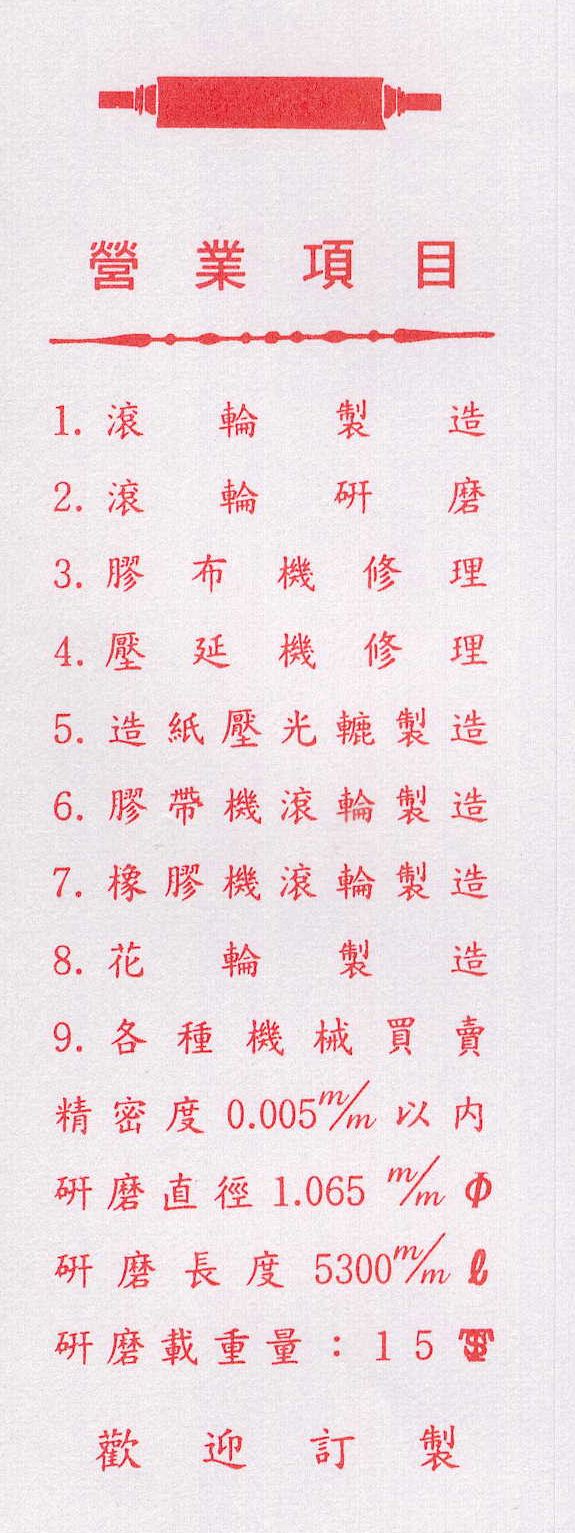 營業項目
1. 滾輪製造
2. 滾輪研磨
3. 膠布機修理
4. 壓延機修理
5. 造紙壓光轆製造
6. 膠帶機滾輪製造
7. 橡膠機滾輪製造
8. 花輪製造
9. 各種機械買賣
精密度 0.005 m/m 以內
研磨直徑 1.065 m/m Φ
研磨長度 5300 m/m ℓ
研磨載重量：15
歡迎訂製